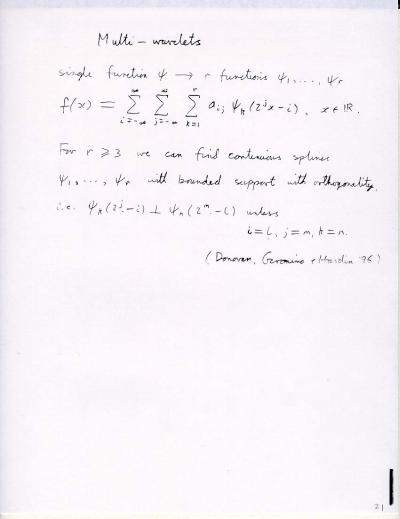 Multi-wavelets
single function ψ → r functions ψ₁, ..., ψᵣ
f(x) = ∑_{i=-∞}^{∞} ∑_{j=-∞}^{∞} ∑_{k=1}^{r} a_{ij} ψ_k(2^j x - i), x ∈ ℝ.
For r ⩾ 3 we can find continuous splines
ψ₁, ..., ψᵣ with bounded support with orthogonality,
i.e. ψ_k(2^j· - i) ⊥ ψ_n(2^m· - l) unless
i = l, j = m, k = n.
(Donovan, Geronimo & Hardin '96)
21